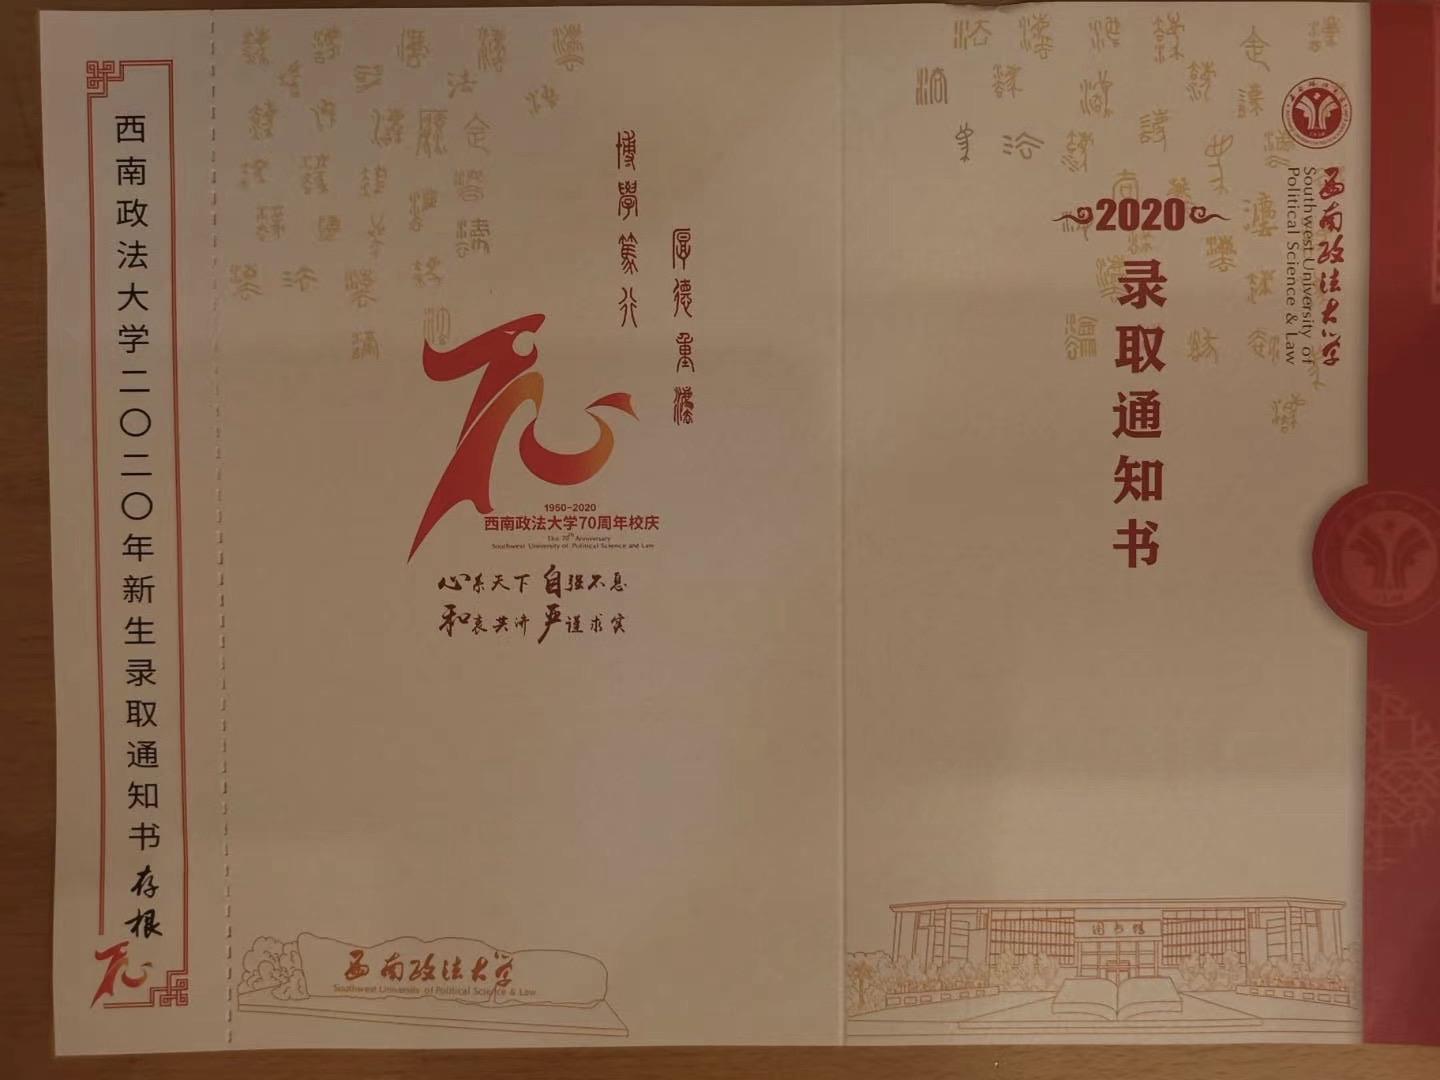 西南政法大学二〇二〇年新生录取通知书存根
博學篤行
厚德重法
1950-2020
西南政法大学70周年校庆
The 70th Anniversary
Southwest University of Political Science and Law
心系天下 自强不息
和衷共济 严谨求实
西南政法大学
Southwest University of Political Science & Law
2020
录取通知书
西南政法大学
Southwest University of
Political Science & Law
图书馆